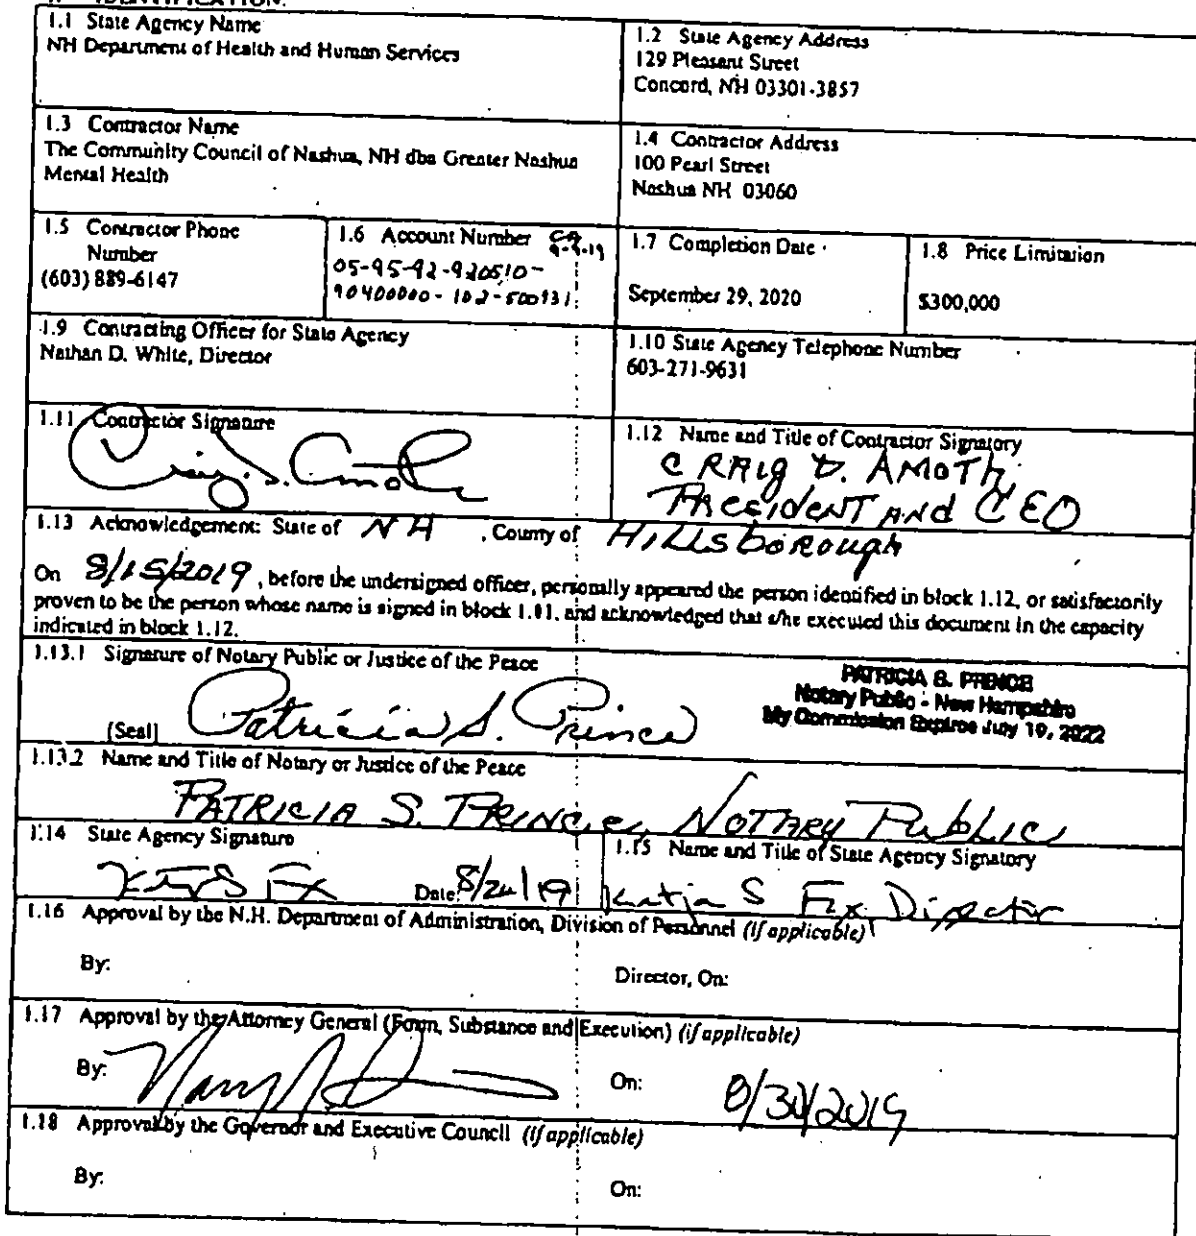 IDENTIFICATION.
1.1 State Agency Name
NH Department of Health and Human Services
1.2 State Agency Address
129 Pleasant Street
Concord, NH 03301-3857
1.3 Contractor Name
The Community Council of Nashua, NH dba Greater Nashua
Mental Health
1.4 Contractor Address
100 Pearl Street
Nashua NH 03060
1.5 Contractor Phone
Number
(603) 889-6147
1.6 Account Number
05-95-92-920510-
90400000-102-500731
1.7 Completion Date
September 29, 2020
1.8 Price Limitation
$300,000
1.9 Contracting Officer for State Agency
Nathan D. White, Director
1.10 State Agency Telephone Number
603-271-9631
1.11 Contractor Signature
Craig D. Amoth
1.12 Name and Title of Contractor Signatory
CRAIG D. AMOTH,
PRESIDENT AND CEO
1.13 Acknowledgement: State of NH , County of Hillsborough
On 8/15/2019 , before the undersigned officer, personally appeared the person identified in block 1.12, or satisfactorily
proven to be the person whose name is signed in block 1.11, and acknowledged that s/he executed this document in the capacity
indicated in block 1.12.
1.13.1 Signature of Notary Public or Justice of the Peace
PATRICIA S. PRINCE
Notary Public - New Hampshire
My Commission Expires July 19, 2022
[Seal] Patricia S. Prince
1.13.2 Name and Title of Notary or Justice of the Peace
PATRICIA S. PRINCE, NOTARY PUBLIC
1.14 State Agency Signature
Date:
1.15 Name and Title of State Agency Signatory
Katja S Fox, Director
1.16 Approval by the N.H. Department of Administration, Division of Personnel (if applicable)
By:
Director, On:
1.17 Approval by the Attorney General (Form, Substance and Execution) (if applicable)
By:
On: 8/30/2019
1.18 Approval by the Governor and Executive Council (if applicable)
By:
On: